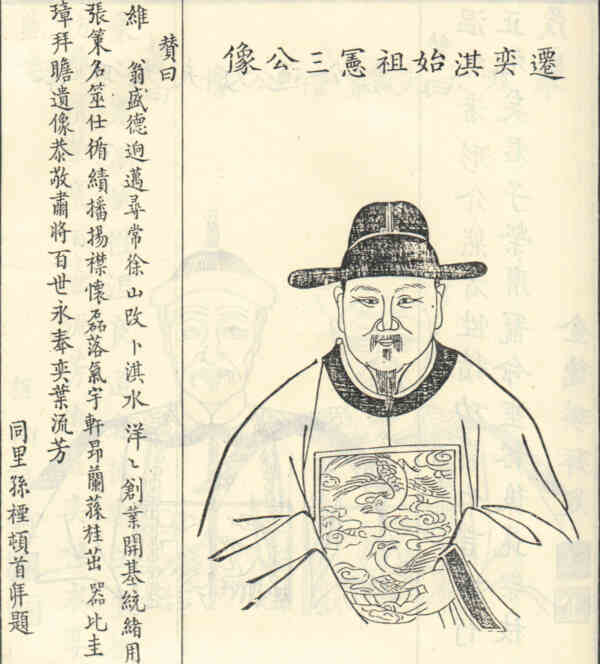 遷奕淇始祖憲三公像
贊曰
維 翁盛德逈邁尋常徐山改卜淇水洋〻創業開基統緒用
張策名筮仕循績播揚襟懷磊落氣宇軒昂蘭蓀桂茁器比圭
璋拜瞻遺像恭敬肅將百世永奉奕葉流芳
同里孫頓首拜題